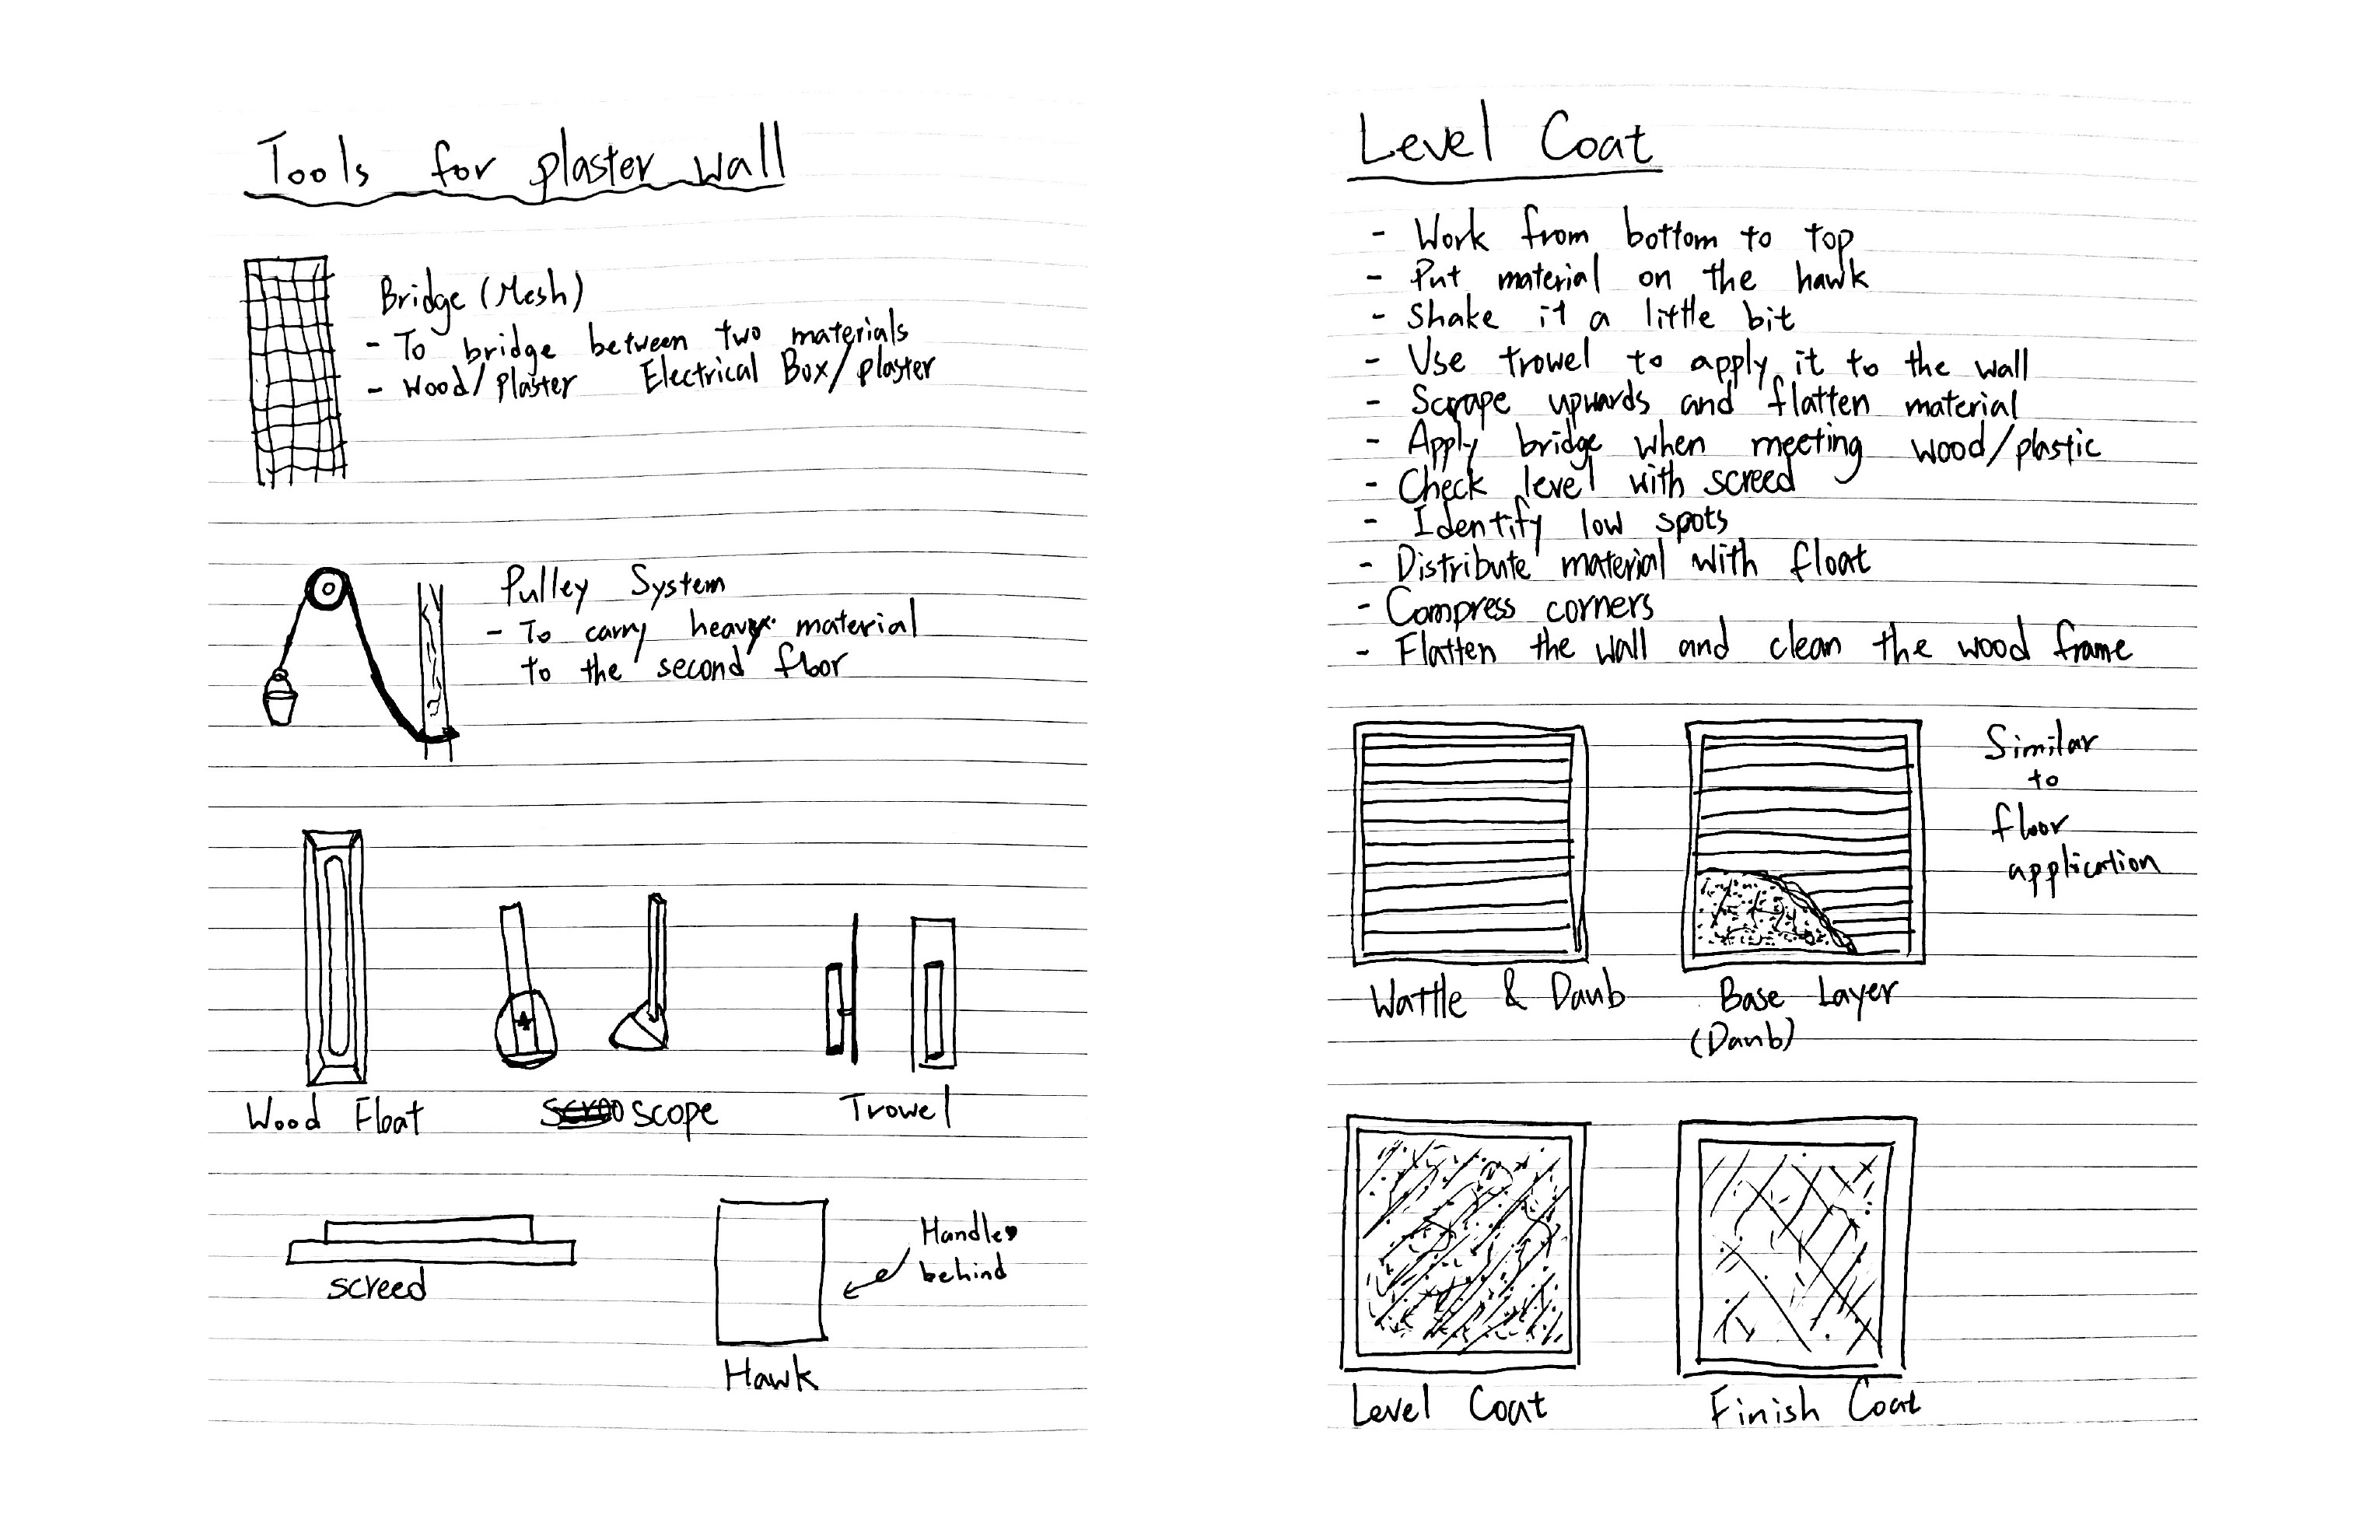 Tools for plaster wall
Bridge (Mesh)
- To bridge between two materials
- Wood/plaster Electrical Box/plaster
Pulley System
- To carry heavy material
to the second floor
Wood Float
scope
Trowel
screed
Handle
behind
Hawk
Level Coat
- Work from bottom to top
- Put material on the hawk
- Shake it a little bit
- Use trowel to apply it to the wall
- Scrape upwards and flatten material
- Apply bridge when meeting wood/plastic
- Check level with screed
- Identify low spots
- Distribute material with float
- Compress corners
- Flatten the wall and clean the wood frame
Similar
to
floor
application
Wattle & Daub
Base Layer
(Daub)
Level Coat
Finish Coat